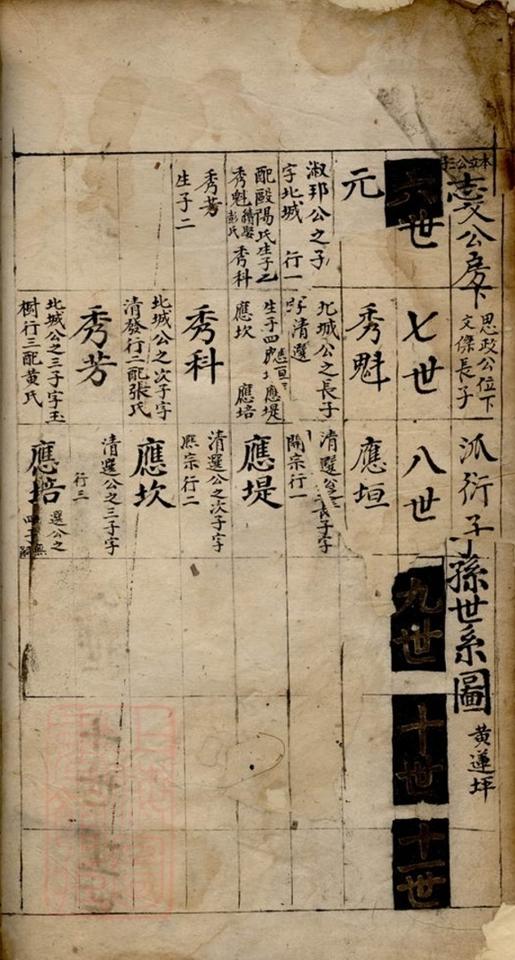 志文公房下
思政公位下
文傑長子
派衍子孫世系圖
黃蓮坪
六世
七世
八世
九世
十世
十一世
元
淑邦公之子
字北城 行一
配歐陽氏生子三
秀魁
彭氏
秀科
秀芳
生子二
秀魁
北城公之長子
字清選
生子四
應垣
應堤
應坎
應培
秀科
北城公之次子字
清發行二配張氏
秀芳
北城公之三子字玉
樹行三配黃氏
應垣
清選公之長子字
開宗行一
應堤
清選公之次子字
熙宗行二
應坎
清選公之三子字
行三
應培
選公之
四子